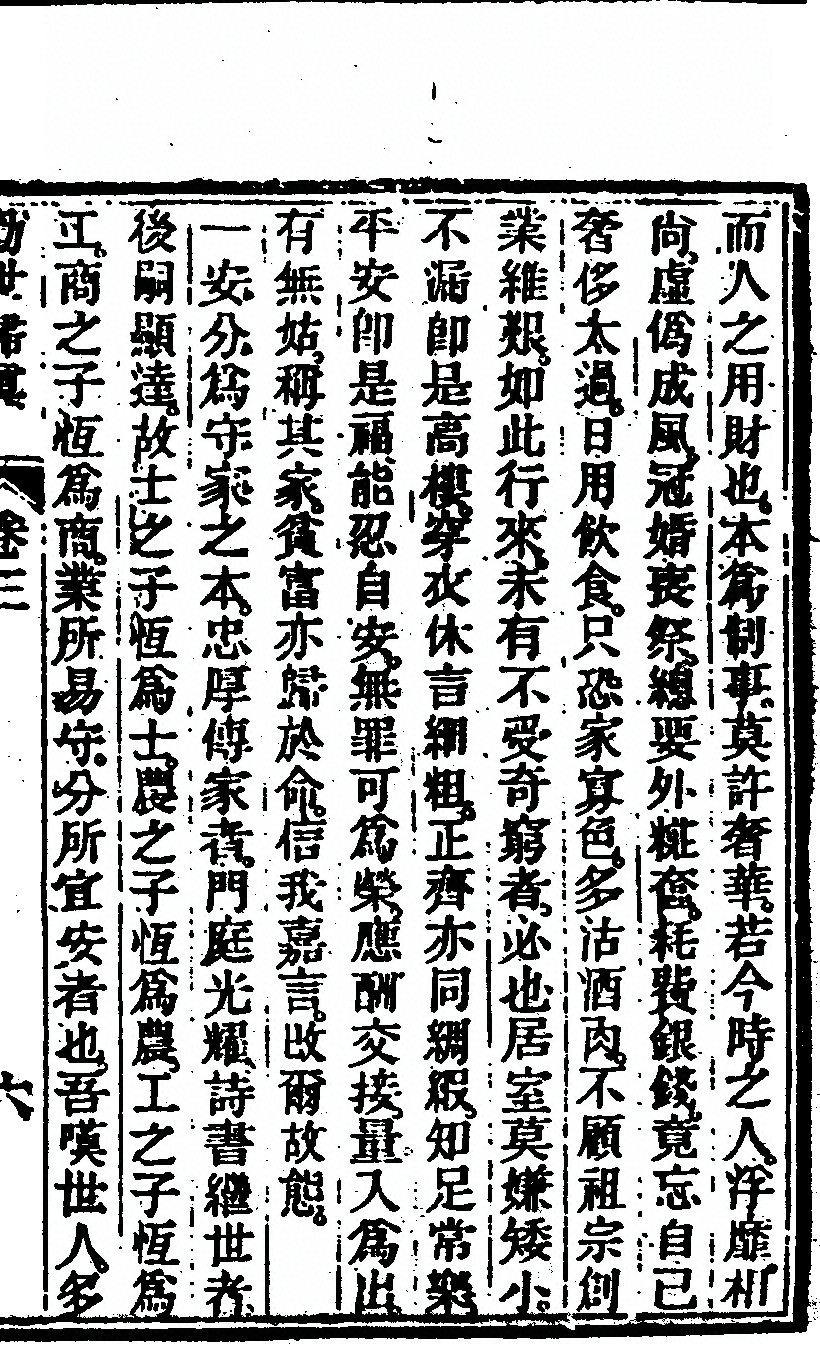 而人之用財也。本為制事。莫許奢華。若今時之人。浮靡相
尚。虛僞成風。冠婚喪祭。總要外粧奩。耗費銀錢。竟忘自己
奢侈太過。日用飲食。只恐家寡色。多沽酒肉。不顧祖宗創
業維艱。如此行來。未有不受奇窮者。必也居室莫嫌矮小。
不漏卽是高樓。穿衣休言細粗。正齊亦同綢緞。知足常樂。
平安卽是福。能忍自安。無罪可為榮。應酬交接。量入為出。
有無姑。稱其家。貧富亦歸於命。信我嘉言。改爾故態。
一安分為守家之本。忠厚傳家者。門庭光耀。詩書繼世者。
後嗣顯達。故士之子恆為士。農之子恆為農。工之子恆為
工。商之子恆為商。業所易守。分所宜安者也。吾嘆世人。多
卷三
六